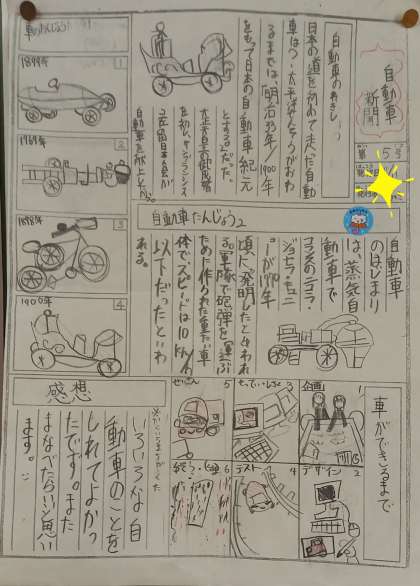 自動車
新聞
第 5号
自動車のれきし
日本の道を初めて走った自動
車はつ、太平洋
までは、「明治33年/1900年
をもって日本の自動車紀元
とする。」だった。
大正天皇の御成婚
を祝い、サンフランシス
コ在留日本人会が
自動車を献上した。
自動車たんじょう2
自動車
のはじまり
は、蒸気自
動車で
フランスのニコラ・
ジョセフ・キュニ
ョーが1769年
頃に発明したといわれ
る。軍隊で砲弾を運ぶ
ために作られた重たい車
体でスピードは10km/h
以下だったといわ
れる。
車のたんじょう
1
1899年
2
1769年
3
1898年
4
1900年
車ができるまで
企画
1
デザイン
2
3
テスト
4
せいさん
5
6
感想
いろいろな自
動車のことを
しれてよかっ
たです。また
まなべたらいいと思い
ます。